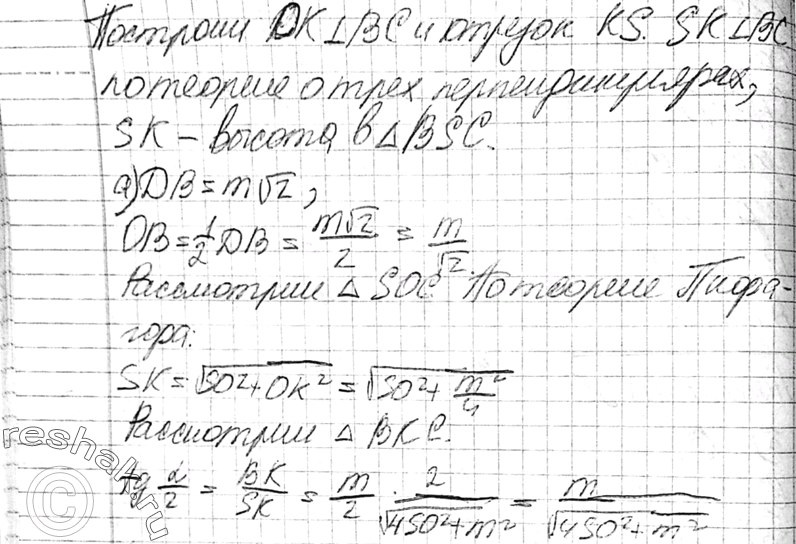 Построим OK⊥BC и отрезок KS. SK⊥BC
по теореме о трех перпендикулярах,
SK – высота в △BSC.
а) DB = m√2,
OB = 1/2 DB = m√2/2 = m/√2.
Рассмотрим △ SOC. По теореме Пифа-
гора:
SK = √(SO²+OK²) = √(SO²+m²/4)
Рассмотрим △ BKC.
tg α/2 = BK/SK = m/2 · 2/√(4SO²+m²) = m/√(4SO²+m²)
© reshak.ru